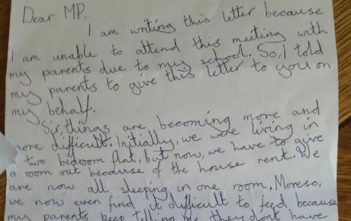 Dear MP,
I am writing this letter because
I am unable to attend this meeting with
my parents due to my school. So, I told
my parents to give this letter to you on
my behalf.
Sir, things are becoming more and
more difficult. Initially, we were living in
a two bedroom flat, but now, we have to give
a room out because of the house rent. We
are now all sleeping in one room, Moreso,
we now even find it difficult to feed because
my parents keep telling me they don't have